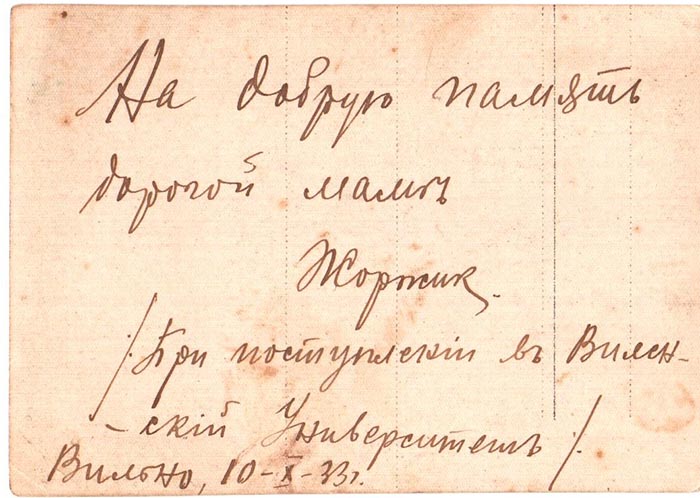 На добрую память
дорогой мамѣ
Жоржик.
/При поступленіи въ Вилен-
-скій Университетъ/.
Вильно, 10-X-33г.